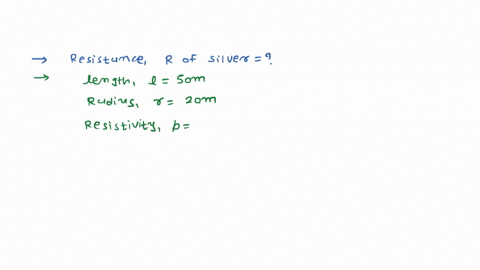 → Resistance, R of silver = ?
→ length, l = 50m
Radius, r = 20m
Resistivity, ρ =